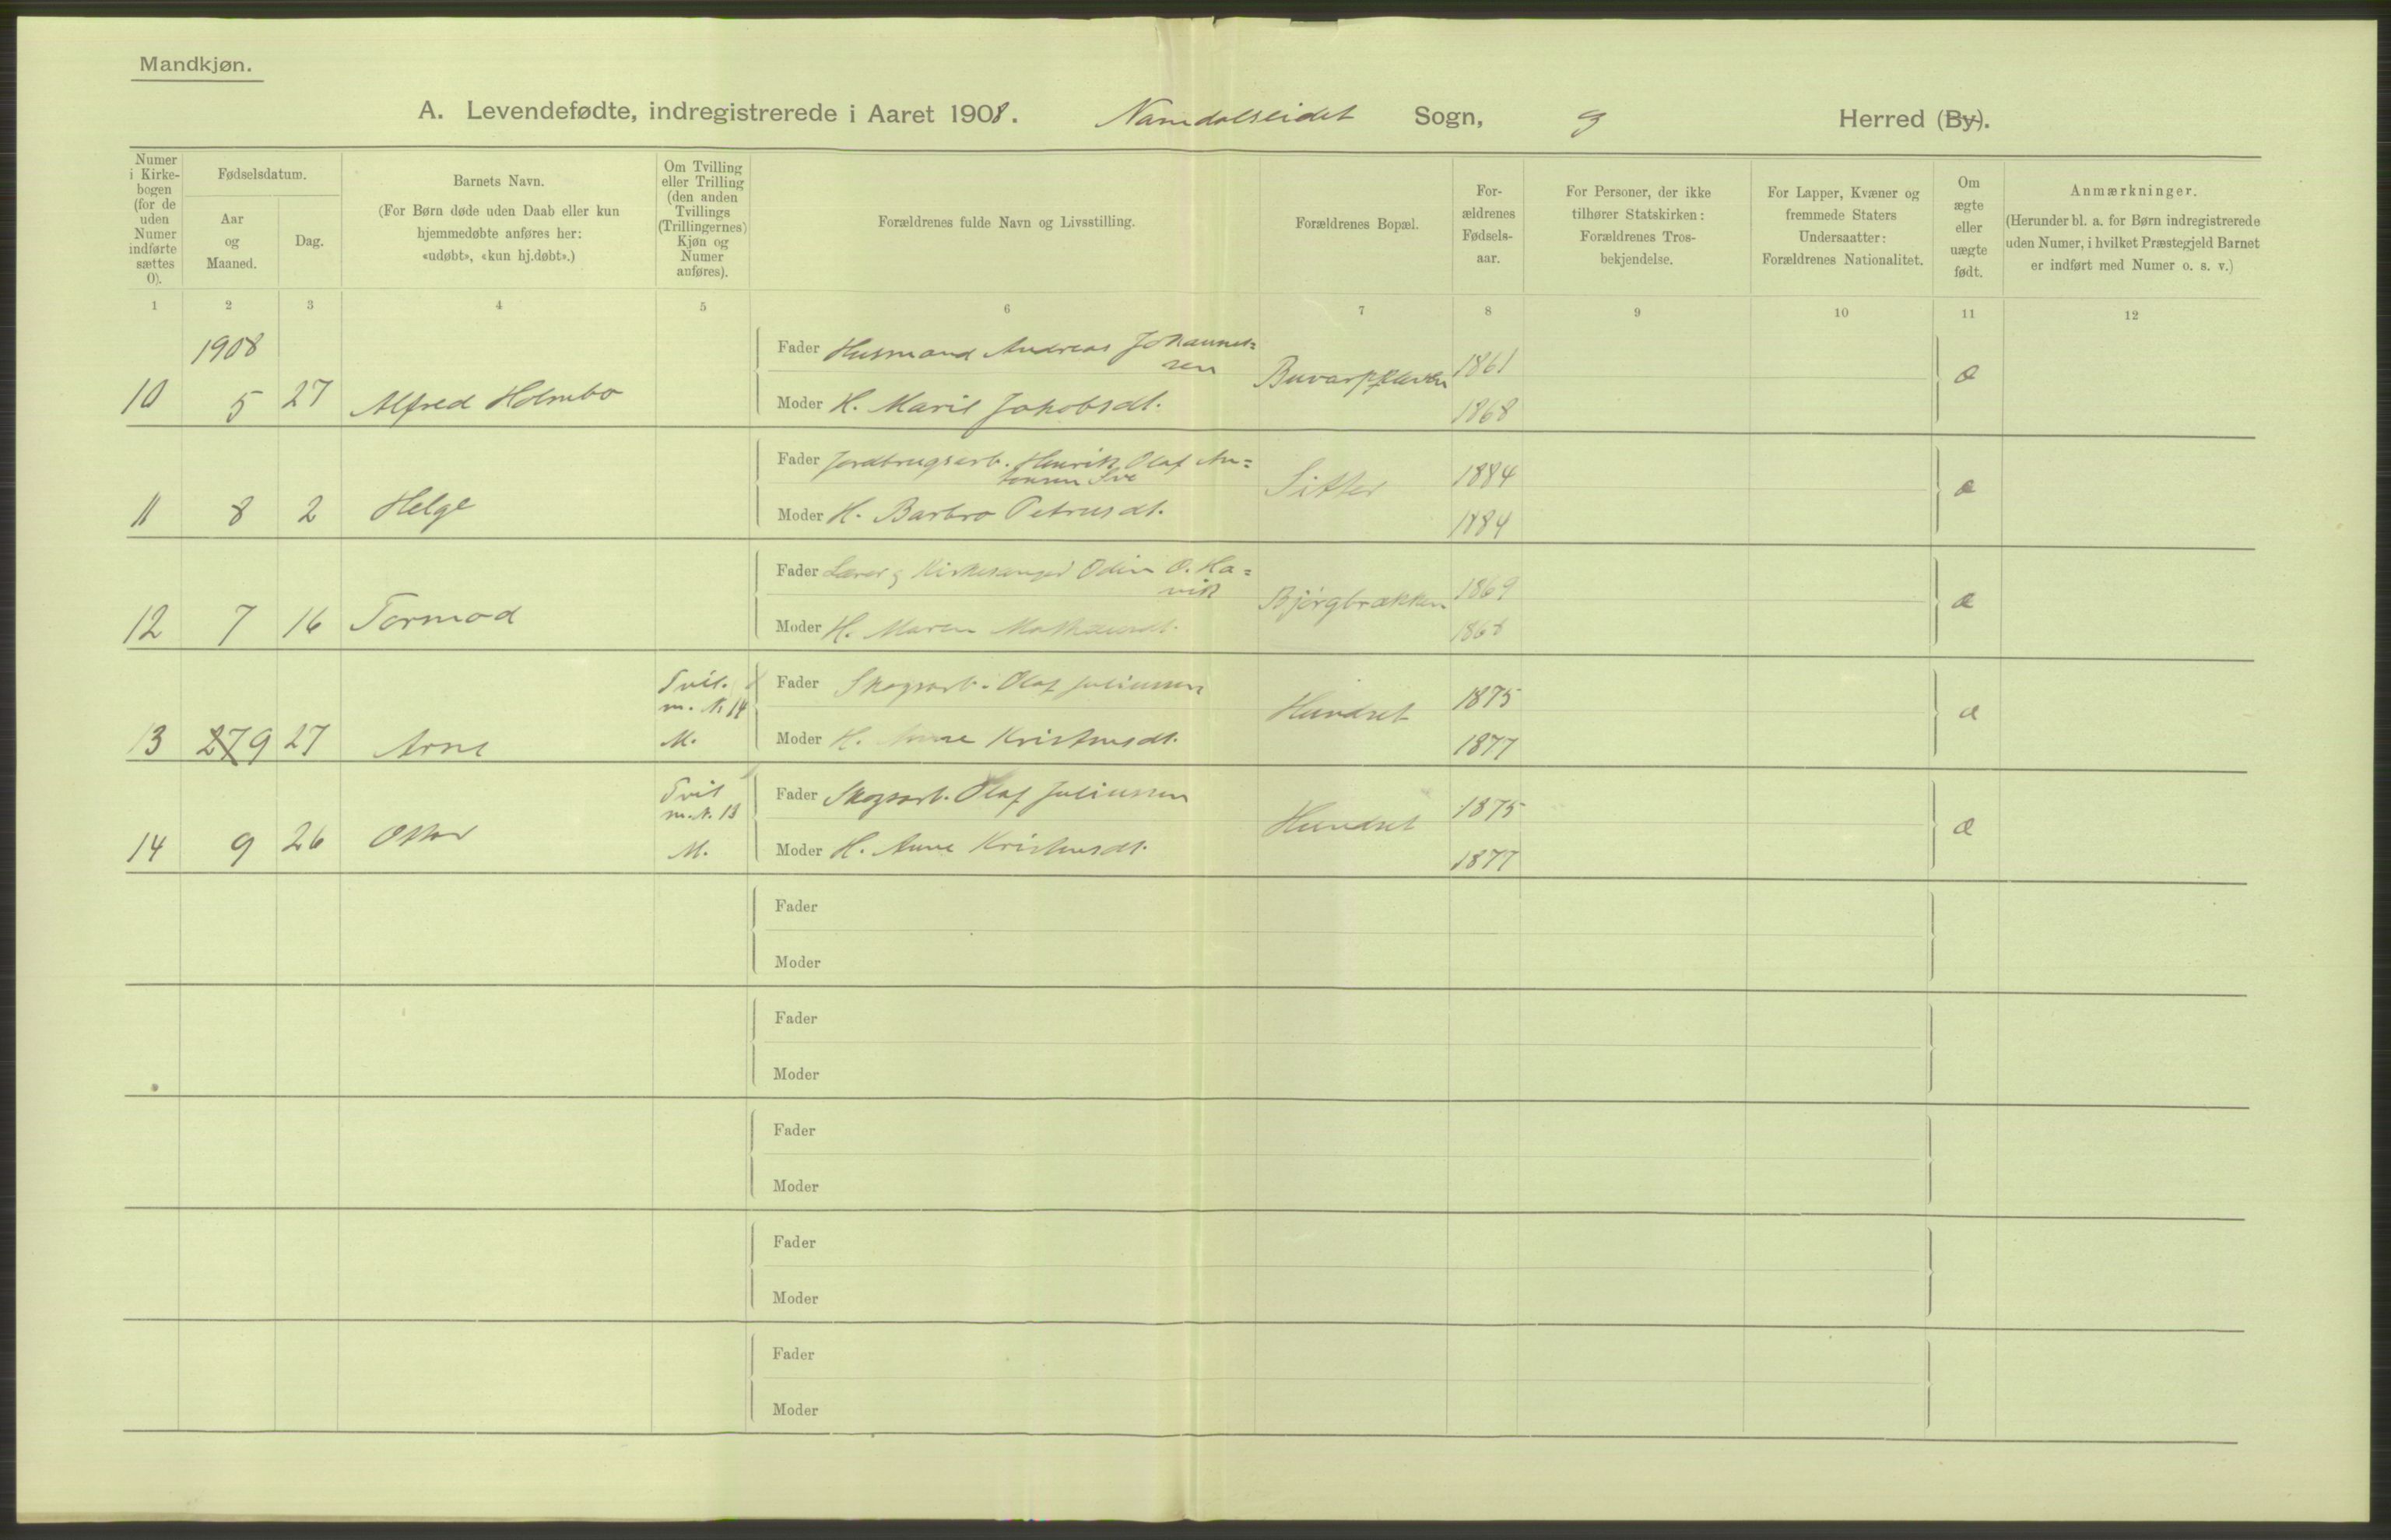 Mandkjøn.
A. Levendefødte, indregistrerede i Aaret 1908. Namdalseidet Sogn, g Herred (By).
Numer i Kirkebogen (for de uden Numer indførte sættes 0).
Fødselsdatum.
Aar og Maaned.
Dag.
Barnets Navn.
(For Børn døde uden Daab eller kun hjemmedøbte anføres her: «udøbt», «kun hj.døbt».)
Om Tvilling eller Trilling (den anden Tvillings (Trillingernes) Kjøn og Numer anføres).
Forældrenes fulde Navn og Livsstilling.
Forældrenes Bopæl.
For-ældrenes Fødsels-aar.
For Personer, der ikke tilhører Statskirken: Forældrenes Tros-bekjendelse.
For Lapper, Kvæner og fremmede Staters Undersaatter: Forældrenes Nationalitet.
Om ægte eller uægte født.
Anmærkninger.
(Herunder bl. a. for Børn indregistrerede uden Numer, i hvilket Præstegjeld Barnet er indført med Numer o. s. v.)
1 2 3 4 5 6 7 8 9 10 11 12
1908
Fader Husmand Andreas Johannes=
sen 1861
10 5 27 Alfred Holmbo Moder H. Marit Jakobsdt. 1868 æ
Fader Jordbrugsarb. Henrik Olaf An=
tonsen Sitter 1884
11 8 2 Helge Moder H. Barbro Petrusdt. 1884 æ
Fader Lærer g Kirkesanger Odin O. Ha=
vik Bjørgbrækken 1869
12 7 16 Tormod Moder H. Maren 1868 æ
Tvil. Fader Skogsarb. Olaf Juliussen 1875
m. N. 14 Hundset æ
13 27 9 27 Arne M. Moder H. Anne Kristensdt. 1877
Tvil Fader Skogsarb. Olaf Juliussen 1875
m. N. 13 Hundset æ
14 9 26 Oskar M. Moder H. Anne Kristensdt. 1877
Fader
Moder
Fader
Moder
Fader
Moder
Fader
Moder
Fader
Moder